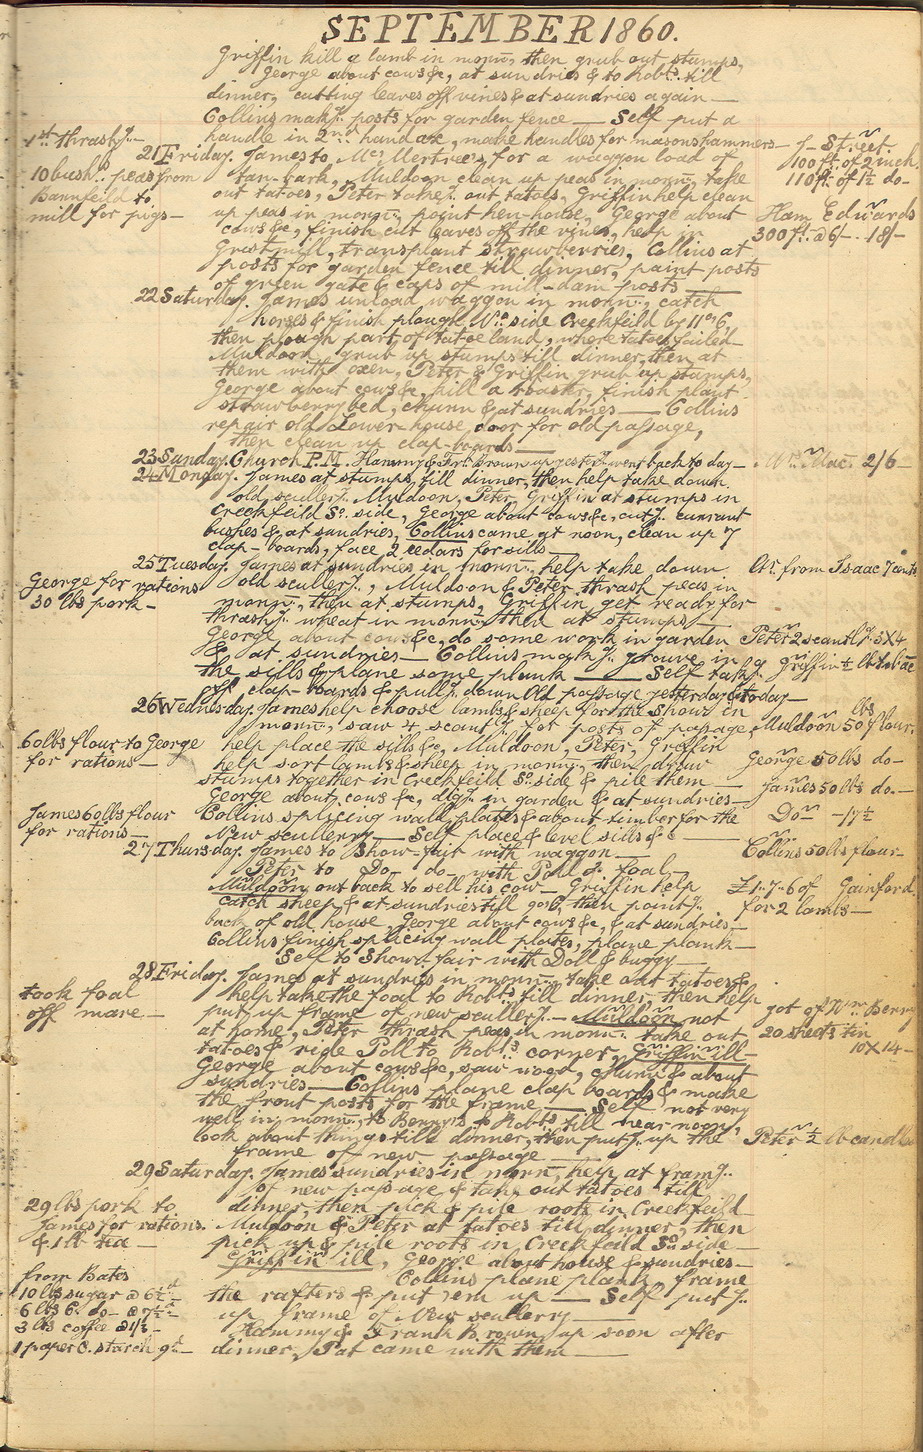 SEPTEMBER 1860.
Griffin kill a lamb in mornḡ, then grub out stumps,
George about cows &c, at sundries & to Robts. till
dinner, cutting leaves off vines & at sundries again —
Collins makg. posts for garden fence — Self put a
handle in 2nd hand axe, make handles for masons hammers —
1st thrashg. —
10 bush. peas from
Bannfeild to
mill for pigs —
21 Friday. James to Mc. Mertree's, for a waggon load of
tan-bark, Muldoon clean up peas in mornḡ, take
out tatoes, Peter takeg. out tatoes, Griffin help clean
up peas in mornḡ, point hen-house, George about
cows &c, finish cut leaves off the vines, help in
Grist mill, transplant strawberries, Collins at
posts for garden fence till dinner, paint posts
of green gate & caps of mill-dam posts —
J— Street.
100 ft. of 2 inch
110 ft. of 1½ do —
Ham Edwards
300 ft. @ 6/- . 18/-
22 Saturday. James unload waggon in mornḡ, catch
horses & finish plough No. side Creekfeild by 11 o'c,
then plough part of tatoe land, where tatoes failed
Muldoon grub up stumps till dinner, then at
them with oxen, Peter & Griffin grub up stumps,
George about cows &c, kill a roaster, finish plant
strawberry bed, churn & at sundries — Collins
repair old Lower-house door for old passage,
then clean up clap-boards —
23 Sunday. Church P.M. Hammy & Frk. Brown up yestery. went back to day —
Wm. Mac. 2/6 —
24 Monday. James at stumps till dinner, then help take down
old scullery. Muldoon, Peter, Griffin at stumps in
Creekfeild So. side, George about cows &c, cutg. currant
bushes & at sundries, Collins came at noon, clean up 7
clap-boards, face 2 cedars for sills —
25 Tuesday. James at sundries in mornḡ, help take down
old scullery, Muldoon & Peter thrash peas in
mornḡ, then at stumps, Griffin get ready for
thrashg. wheat in mornḡ then at stumps —
George about cows &c, do some work in garden
& at sundries — Collins makg. groove in
the sills & plane some plank — Self takg.
off clap-boards & pullg. down Old passage yesterday & today —
George for rations
30 lbs pork —
from Isaac 7 cents
Peter 2 scantlg. 3X4
Griffin ½ lb tobac
26 Wednesday. James help choose lambs & sheep for the Show in
mornḡ, saw 4 scantg. for posts of passage,
help place the sills &c, Muldoon, Peter, Griffin
help sort lambs & sheep in mornḡ, then draw
stumps together in Creekfeild So. side & pile them —
George about cows &c, digg. in garden & at sundries —
Collins splicing wall plates & about timber for the
New scullery — Self place & level sills & c —
60 lbs flour to George
for rations —
James 60 lbs flour
for rations —
Muldoon 50 lbs flour.
George 50 lbs do —
James 50 lbs do. —
Do — 17½
27 Thursday. James to Show-fair with waggon —
Peter to Do do — with Poll & foal —
Muldoon out back to sell his cow — Griffin help
catch sheep, & at sundries till 9 o'c, then pointg.
back of old house, George about cows &c, & at sundries —
Collins finish splicing wall plates, plane plank —
Self to Show fair with Doll & buggy —
Collins 50 lbs flour —
£1..7..6 of Gainford
for 2 lambs —
28 Friday. James at sundries in mornḡ, take out tatoes &
help take the foal to Robts. till dinner, then help
put up frame of new scullery. — Muldoon not
at home, Peter thrash peas in mornḡ take out
tatoes & ride Poll to Robts. corner, Griffin ill —
George about cows &c, saw wood, churn & about
sundries — Collins plane clap boards & make
the front posts for the frame — Self not very
well in mornḡ, to Benny's & Robts. till near noon,
look about things till dinner, then putg. up the
frame of new passage —
took foal
off mare —
got of Wm Benny
20 sheets tin
10X14 —
Peter ½ lb candles
29 Saturday. James sundries in mornḡ, help at framg.
of new passage & take out tatoes till
dinner, then pick & pile roots in Creekfeild
Muldoon & Peter at tatoes till dinner, then
pick up & pile roots in Creekfeild So. side —
Griffin ill, George about house & sundries —
Collins plane plank, frame
the rafters & put 'em up — Self putg.
up frame of New scullery —
Hammy & Frank Brown up soon after
dinner, Pat came with them —
29 lbs pork to
James for rations.
& 1 lb tea —
from Bates
10 lbs sugar @ 6½d —
6 lbs C. do — @ 7½d —
3 lbs coffee @ 1/3 —
1 paper C. starch 9d —